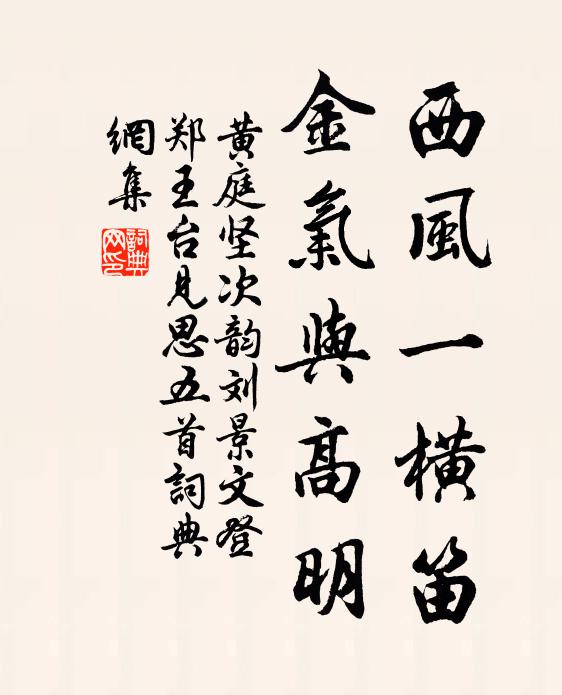 西風一横笛
金氣與高明
黄庭坚次韵刘景文登
郑王台見思五首詞典
網集
詞典
网印